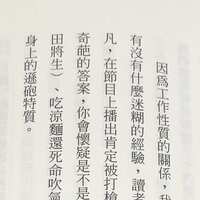 因為工作性質的關係，我
有沒有什麼迷糊的經驗，讀者
凡，在節目上播出肯定被打槍
奇葩的答案，你會懷疑是不是
田將生）、吃涼麵還死命吹氣
身上的逊砲特質。